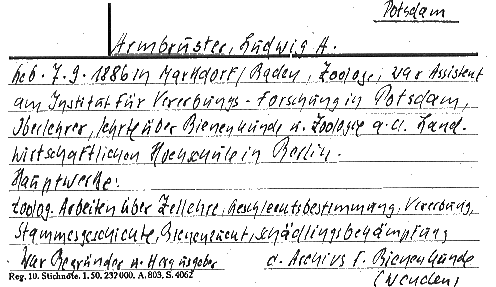 Potsdam
Armbruster, Ludwig A.
geb. 7.9.1886 in Markdorf/Baden, Zoologe, war Assistent
am Institut für Vererbungs-Forschung in Potsdam,
Oberlehrer, lehrte über Bienenkunde u. Zoologie a.d. Land-
wirtschaftlichen Hochschule in Berlin.
Hauptwerke:
Zoolog. Arbeiten über Zellehre, Geschlechtsbestimmung, Vererbung,
Stammesgeschichte, Bienenzucht, Schädlingsbekämpfung
War Begründer u. Herausgeber d. Archivs f. Bienenkunde
Reg. 10. Stichnote. 1. 50. 232000. A. 803, S. 4062